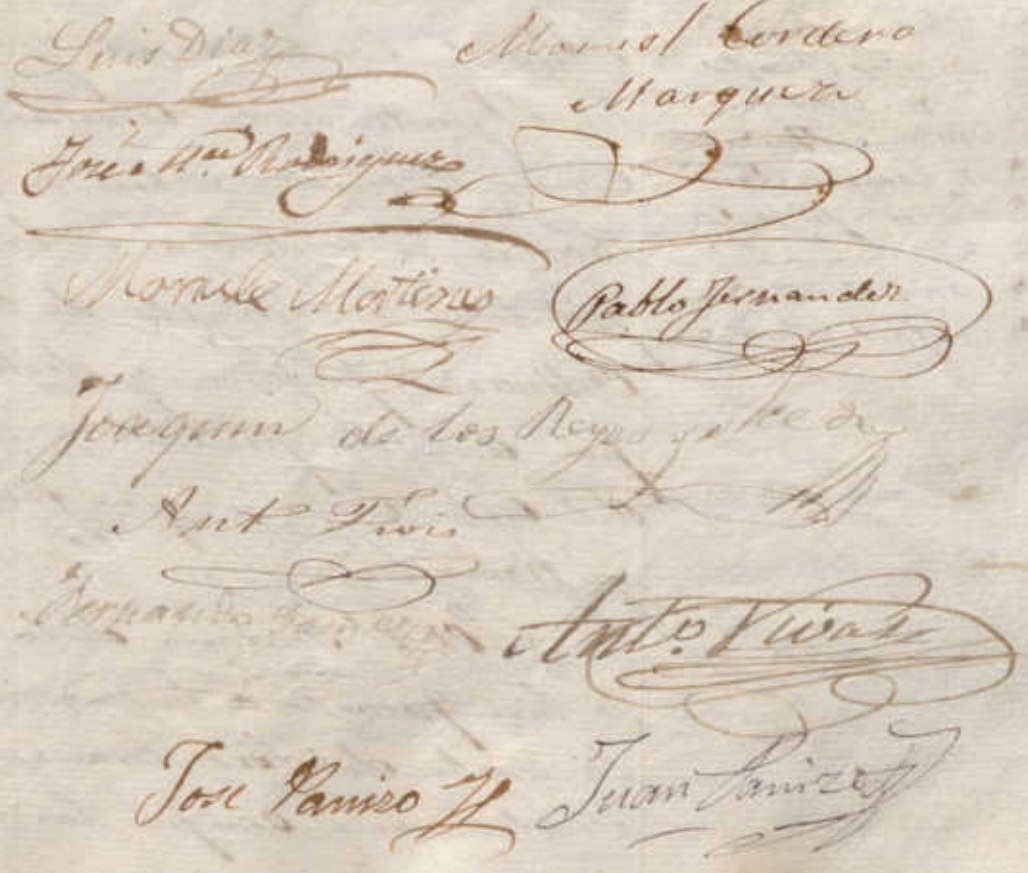 Luis Diaz
Manuel Cordero
Marquez
José Mª Rodriguez
Manuel Martines
Pablo Fernandez
Joaquin de los Reyes
Ant
Fernando
Antº Vivas
Jose Panizo
Juan Panizo